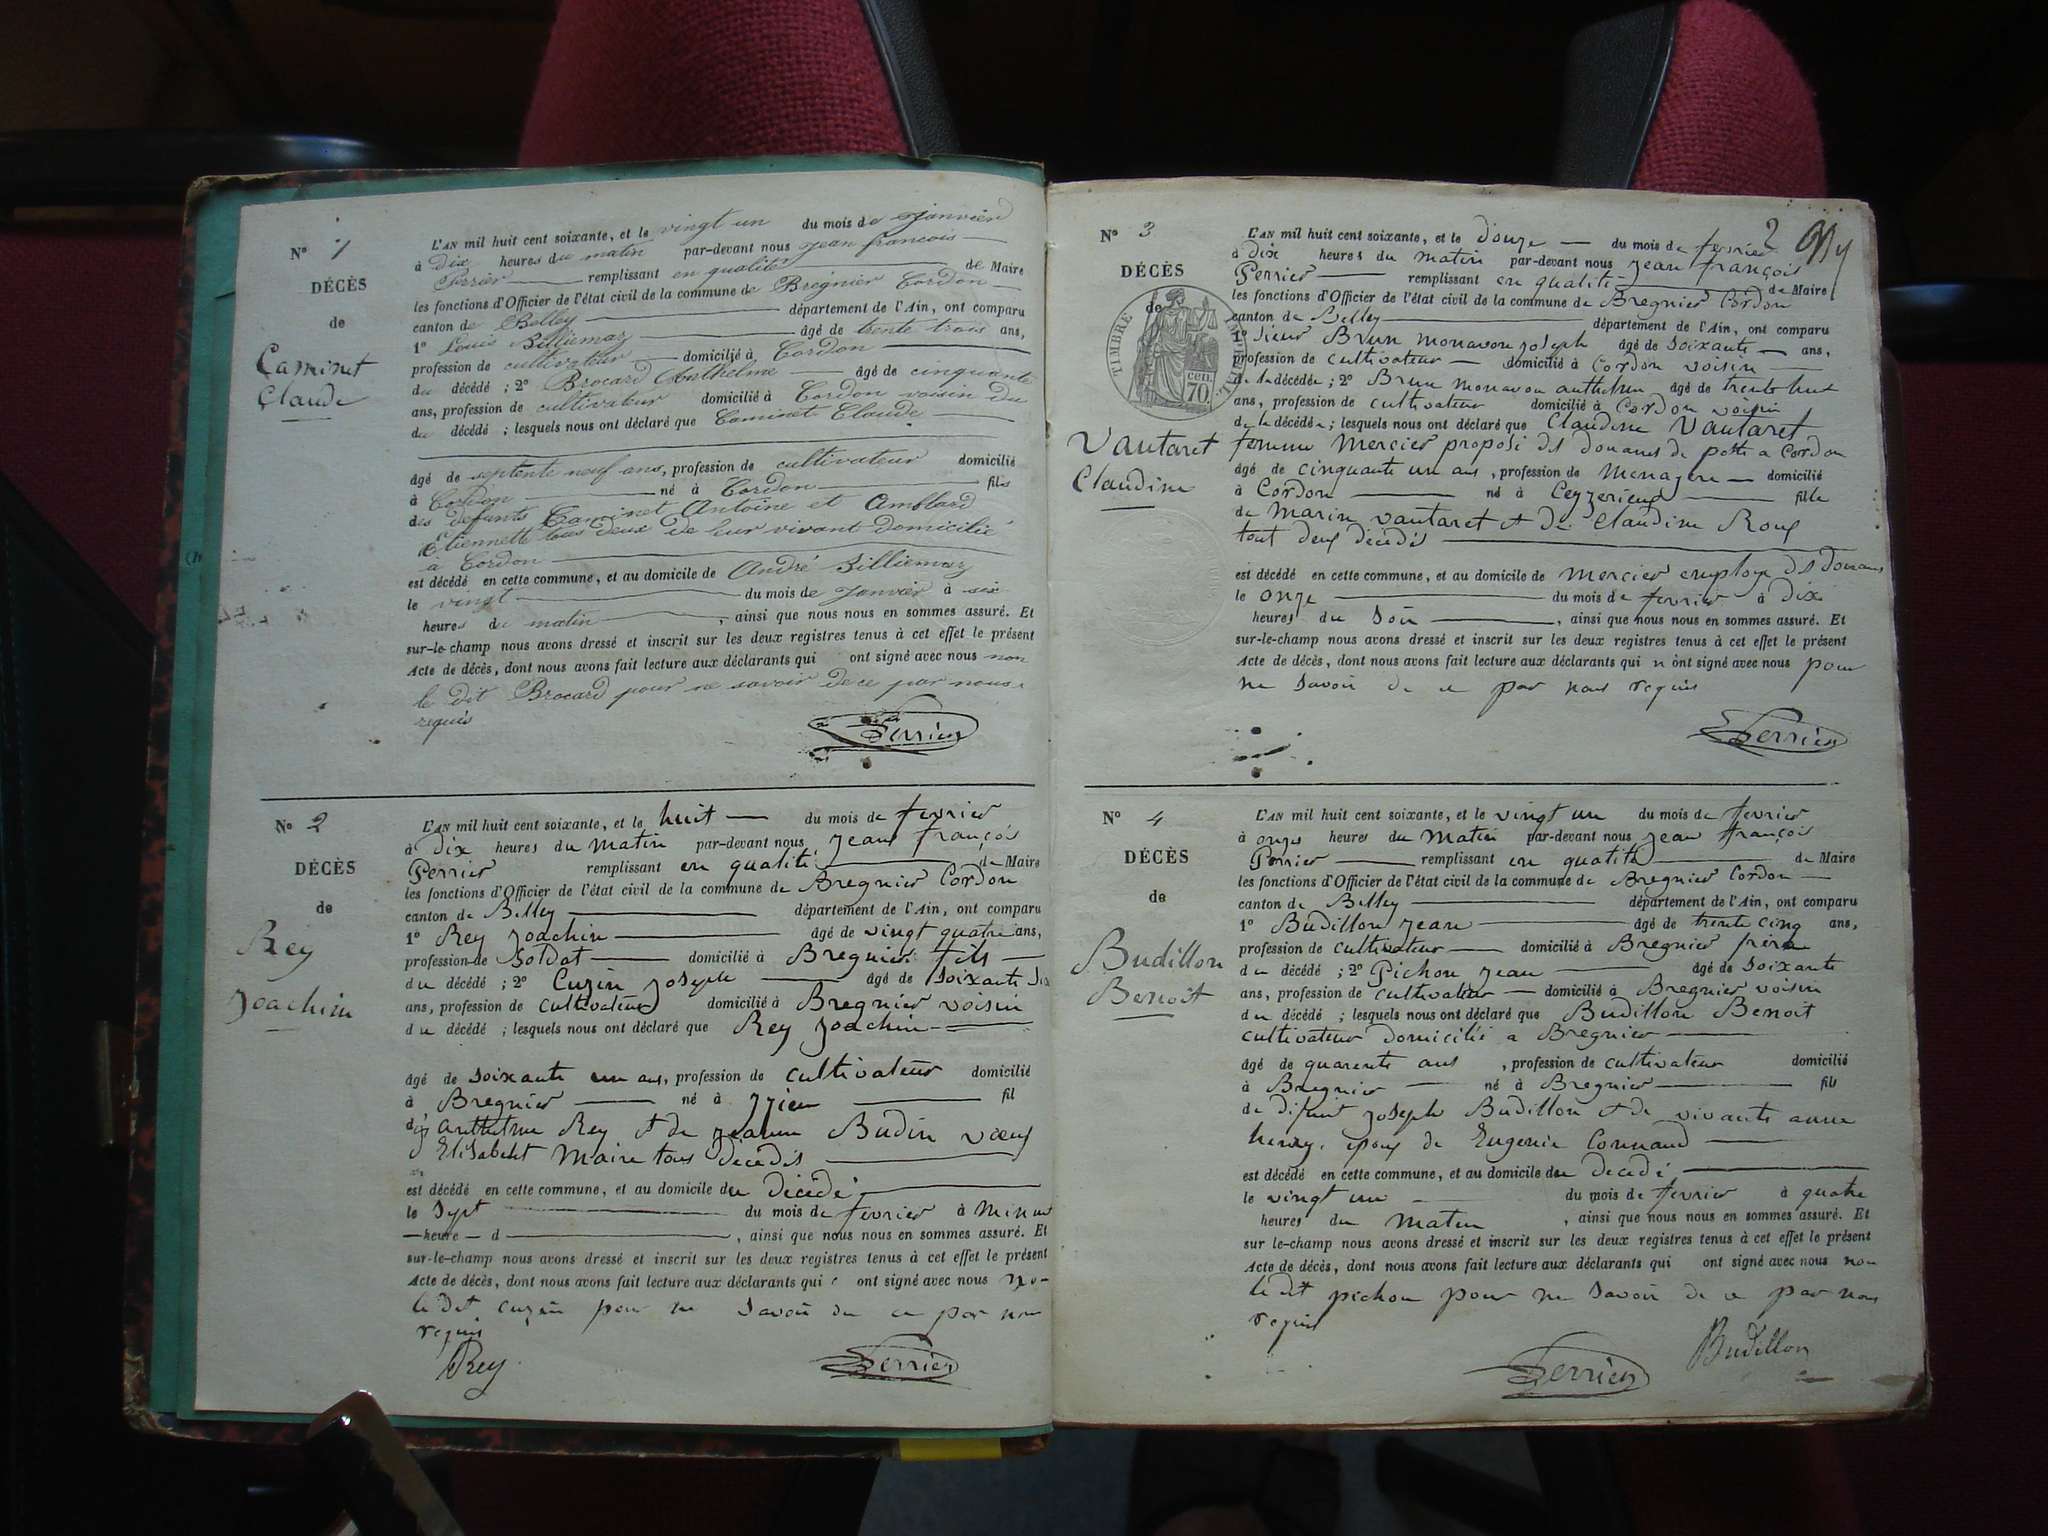 N° 1
DÉCÈS
de
Caminet
Claude
L'AN mil huit cent soixante, et le vingt un du mois de Janvier
à dix heures du matin par-devant nous Jean francois
Perrier remplissant en qualité de Maire
les fonctions d'Officier de l'état civil de la commune de Brégnier Cordon
canton de Belley département de l'Ain, ont comparu
1° Louis Billiemaz âgé de trente trois ans,
profession de cultivateur domicilié à Cordon
du décédé ; 2° Brocard Anthelme âgé de cinquante
ans, profession de cultivateur domicilié à Cordon voisin du
du décédé ; lesquels nous ont déclaré que Caminet Claude
âgé de septente neuf ans, profession de cultivateur domicilié
à Cordon né à Cordon fils
des défunts Caminet Antoine et Amblard
Etiennette tous deux de leur vivant domicilié
à Cordon
est décédé en cette commune, et au domicile de André Billiemaz
le vingt du mois de Janvier à six
heures du matin, ainsi que nous nous en sommes assuré. Et
sur-le-champ nous avons dressé et inscrit sur les deux registres tenus à cet effet le présent
Acte de décès, dont nous avons fait lecture aux déclarants qui ont signé avec nous non
le dit Brocard pour ne savoir de ce par nous
requis
Perrier
N° 2
DÉCÈS
de
Rey
Joachim
L'AN mil huit cent soixante, et le huit du mois de fevrier
à dix heures du matin par-devant nous Jean françois
Perrier remplissant en qualité de Maire
les fonctions d'Officier de l'état civil de la commune de Bregnier Cordon
canton de Belley département de l'Ain, ont comparu
1° Rey Joachin âgé de vingt quatre ans,
profession de Soldat domicilié à Bregnier fils
du décédé ; 2° Cuzin Joseph âgé de soixante six
ans, profession de cultivateur domicilié à Bregnier voisin
du décédé ; lesquels nous ont déclaré que Rey Joachin
âgé de soixante un ans, profession de cultivateur domicilié
à Bregnier né à Izieu fil
de anthelme Rey et de Jeanne Budin voeuf
d'Elisabeht Maire tous decedés
est décédé en cette commune, et au domicile du décédé
le sept du mois de fevrier à Minuit
heure d, ainsi que nous nous en sommes assuré. Et
sur-le-champ nous avons dressé et inscrit sur les deux registres tenus à cet effet le présent
Acte de décès, dont nous avons fait lecture aux déclarants qui ont signé avec nous no-
le dit cuzin pour ne savoir de ce par nous
requis
Rey
Perrier
2
N° 3
DÉCÈS
de
TIMBRE IMPÉRIAL
70 cen.
Vautaret
Claudine
L'AN mil huit cent soixante, et le douze du mois de fevrier
à dix heures du matin par-devant nous Jean françois
Perrier remplissant en qualité de Maire
les fonctions d'Officier de l'état civil de la commune de Bregnier Cordon
canton de Belley département de l'Ain, ont comparu
1° sieur Brun monavon Joseph âgé de soixante ans,
profession de cultivateur domicilié à Cordon voisin
de la décédée ; 2° Brun monavon anthelme âgé de trente huit
ans, profession de cultivateur domicilié à Cordon voisin
de la décédée ; lesquels nous ont déclaré que Claudine Vautaret
femme Mercier proposé des douanes de poste a Cordon
âgé de cinquante un ans, profession de Menagere domicilié
à Cordon né à Ceyzerieux fille
de Marin vautaret et de Claudine Roux
tout deux décédés
est décédé en cette commune, et au domicile de Mercier employe des douanes
le onze du mois de fevrier à dix
heures du Soir, ainsi que nous nous en sommes assuré. Et
sur-le-champ nous avons dressé et inscrit sur les deux registres tenus à cet effet le présent
Acte de décès, dont nous avons fait lecture aux déclarants qui n'ont signé avec nous pour
ne savoir de ce par nous requis
Perrier
N° 4
DÉCÈS
de
Budillon
Benoit
L'AN mil huit cent soixante, et le vingt un du mois de fevrier
à onze heures du Matin par-devant nous Jean françois
Perrier remplissant en qualité de Maire
les fonctions d'Officier de l'état civil de la commune de Bregnier Cordon
canton de Belley département de l'Ain, ont comparu
1° Budillon Jean âgé de trente cinq ans,
profession de cultivateur domicilié à Bregnier frère
du décédé ; 2° Pichon Jean âgé de soixante
ans, profession de cultivateur domicilié à Bregnier voisin
du décédé ; lesquels nous ont déclaré que Budillon Benoit
cultivateur domicilié a Bregnier
âgé de quarente ans, profession de cultivateur domicilié
à Bregnier né à Bregnier fils
de difunt Joseph Budillon et de vivante anne
henry, epoux de Eugenie Connand
est décédé en cette commune, et au domicile du decedé
le vingt un du mois de fevrier à quatre
heures du matin, ainsi que nous nous en sommes assuré. Et
sur le-champ nous avons dressé et inscrit sur les deux registres tenus à cet effet le présent
Acte de décès, dont nous avons fait lecture aux déclarants qui ont signé avec nous non
le dit pichon pour ne savoir de ce par nous
requis
Budillon
Perrier